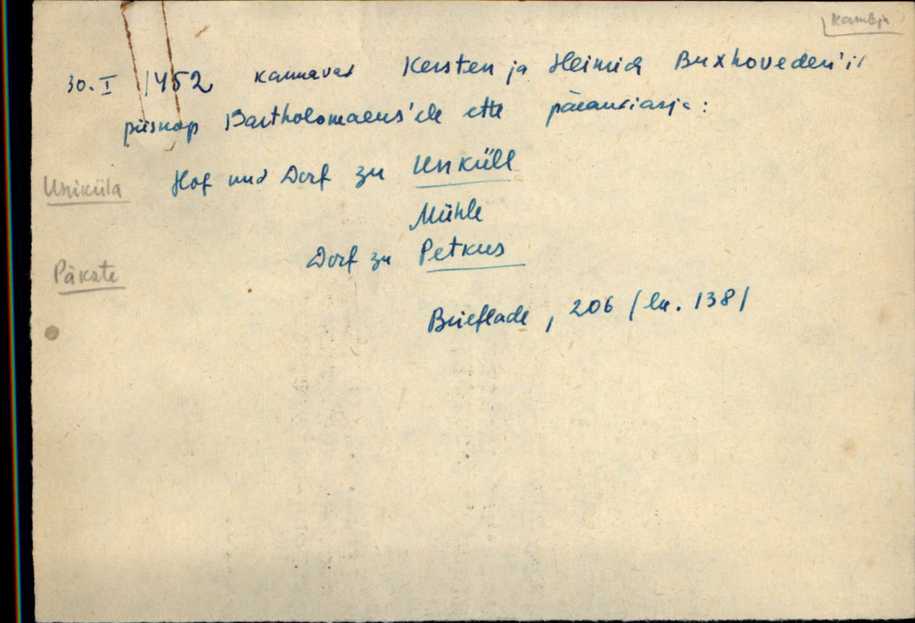 Kambja
30. I 1452 kannavad Kersten ja Heinrich Buxhoveden'id
piiskop Bartholomaeus'ele ette pärandiasja:
Uniküla Hof und Dorf zu Unküll
Mühle
Päkste Dorf zu Petkus
Brieflade, 206 / lu. 138/